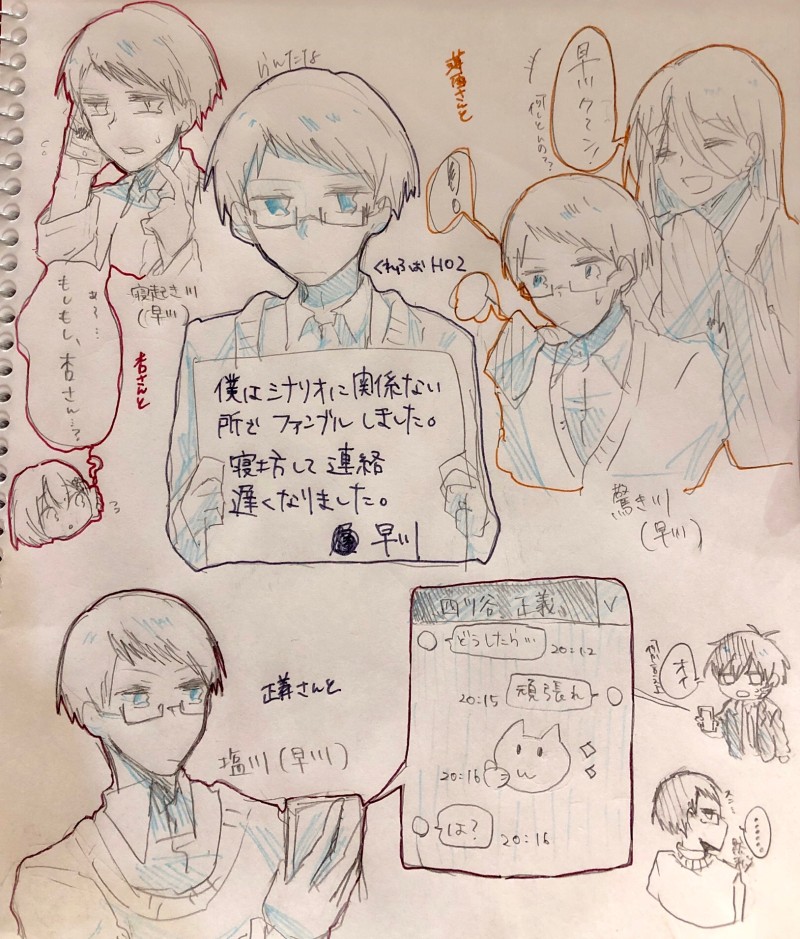 もしもし、杏さん…?
寝起き川
(早川)
杏さんと
くれふぉHO2
僕はシナリオに関係ない
所でファンブルしました。
寝坊して連絡
遅くなりました。
早川
早川クーン!
何しとんの??
驚き川
(早川)
正義さんと
塩川(早川)
四ツ谷 正義
どうしたら…
20:12
頑張れ
20:15
20:16
は?
20:16
オイ